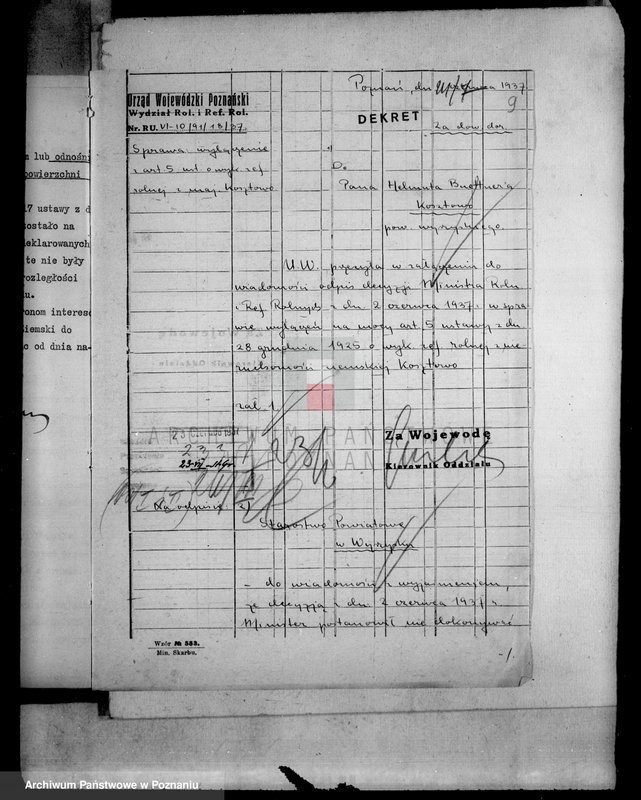 m lub odnośni
powierzchni
17 ustawy z d
zostało na
deklarowanych
te nie były
rozległości
u.
ronom interesc
iemski do
c od dnia na-
Poznań, dn. 1937
9
Urząd Wojewódzki Poznański
Wydział Rol. i Ref. Rol.
Nr. RU. VI-10/91/18/37.
DEKRET
Za dow. dor.
Sprawa wyłączenia
z art 5 ust. o wyk. ref.
rolnej z maj. Kosztowo
Do
Pana Helmuta Buettner'a
Kosztowo
pow. wyrzyskiego.
U.W. przesyła w załączeniu do
wiadomości odpis decyzji Ministra Roln.
i Ref. Rolnych z dn. 2 czerwca 1937 r. w spra-
wie wyłączeń na mocy art. 5 ustawy z dn.
28 grudnia 1925 o wyk. ref. rolnej z nie-
ruchomości ziemskiej Kosztowo
zał. 1
23 1937
Za Wojewodę
Kierownik Oddziału
2)
Starostwo Powiatowe
w Wyrzysku
- do wiadomości z wyjaśnieniem,
że decyzją z dn. 2 czerwca 1937 r.
Minister postanowił nie dokonywać
Wzór № 583.
Min. Skarbu.
-/.
ARCHIWUM PAŃSTWOWE
W POZNANIU
Archiwum Państwowe w Poznaniu